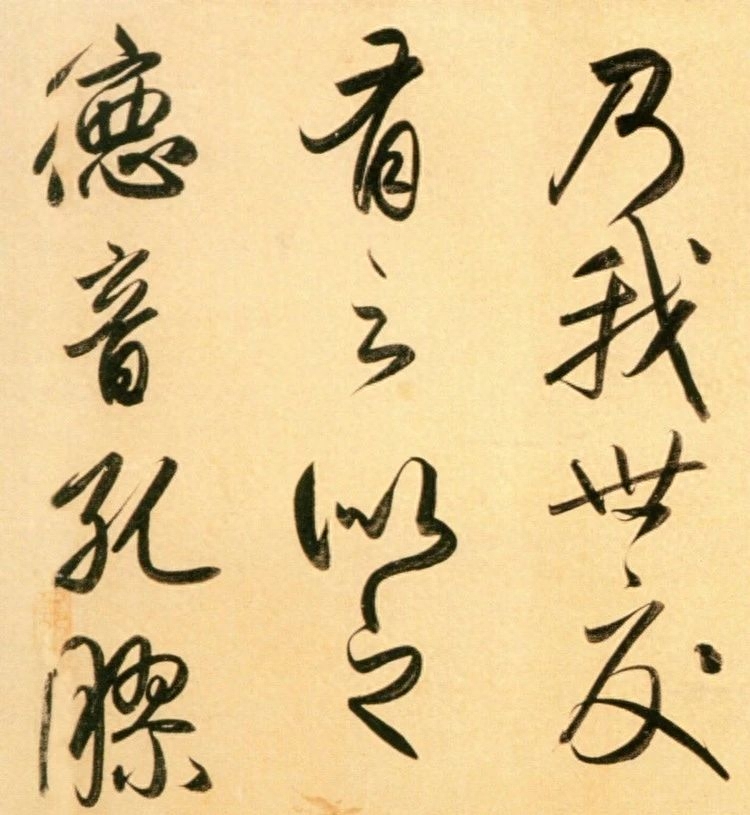 乃我世友
有之似之
德音孔膠